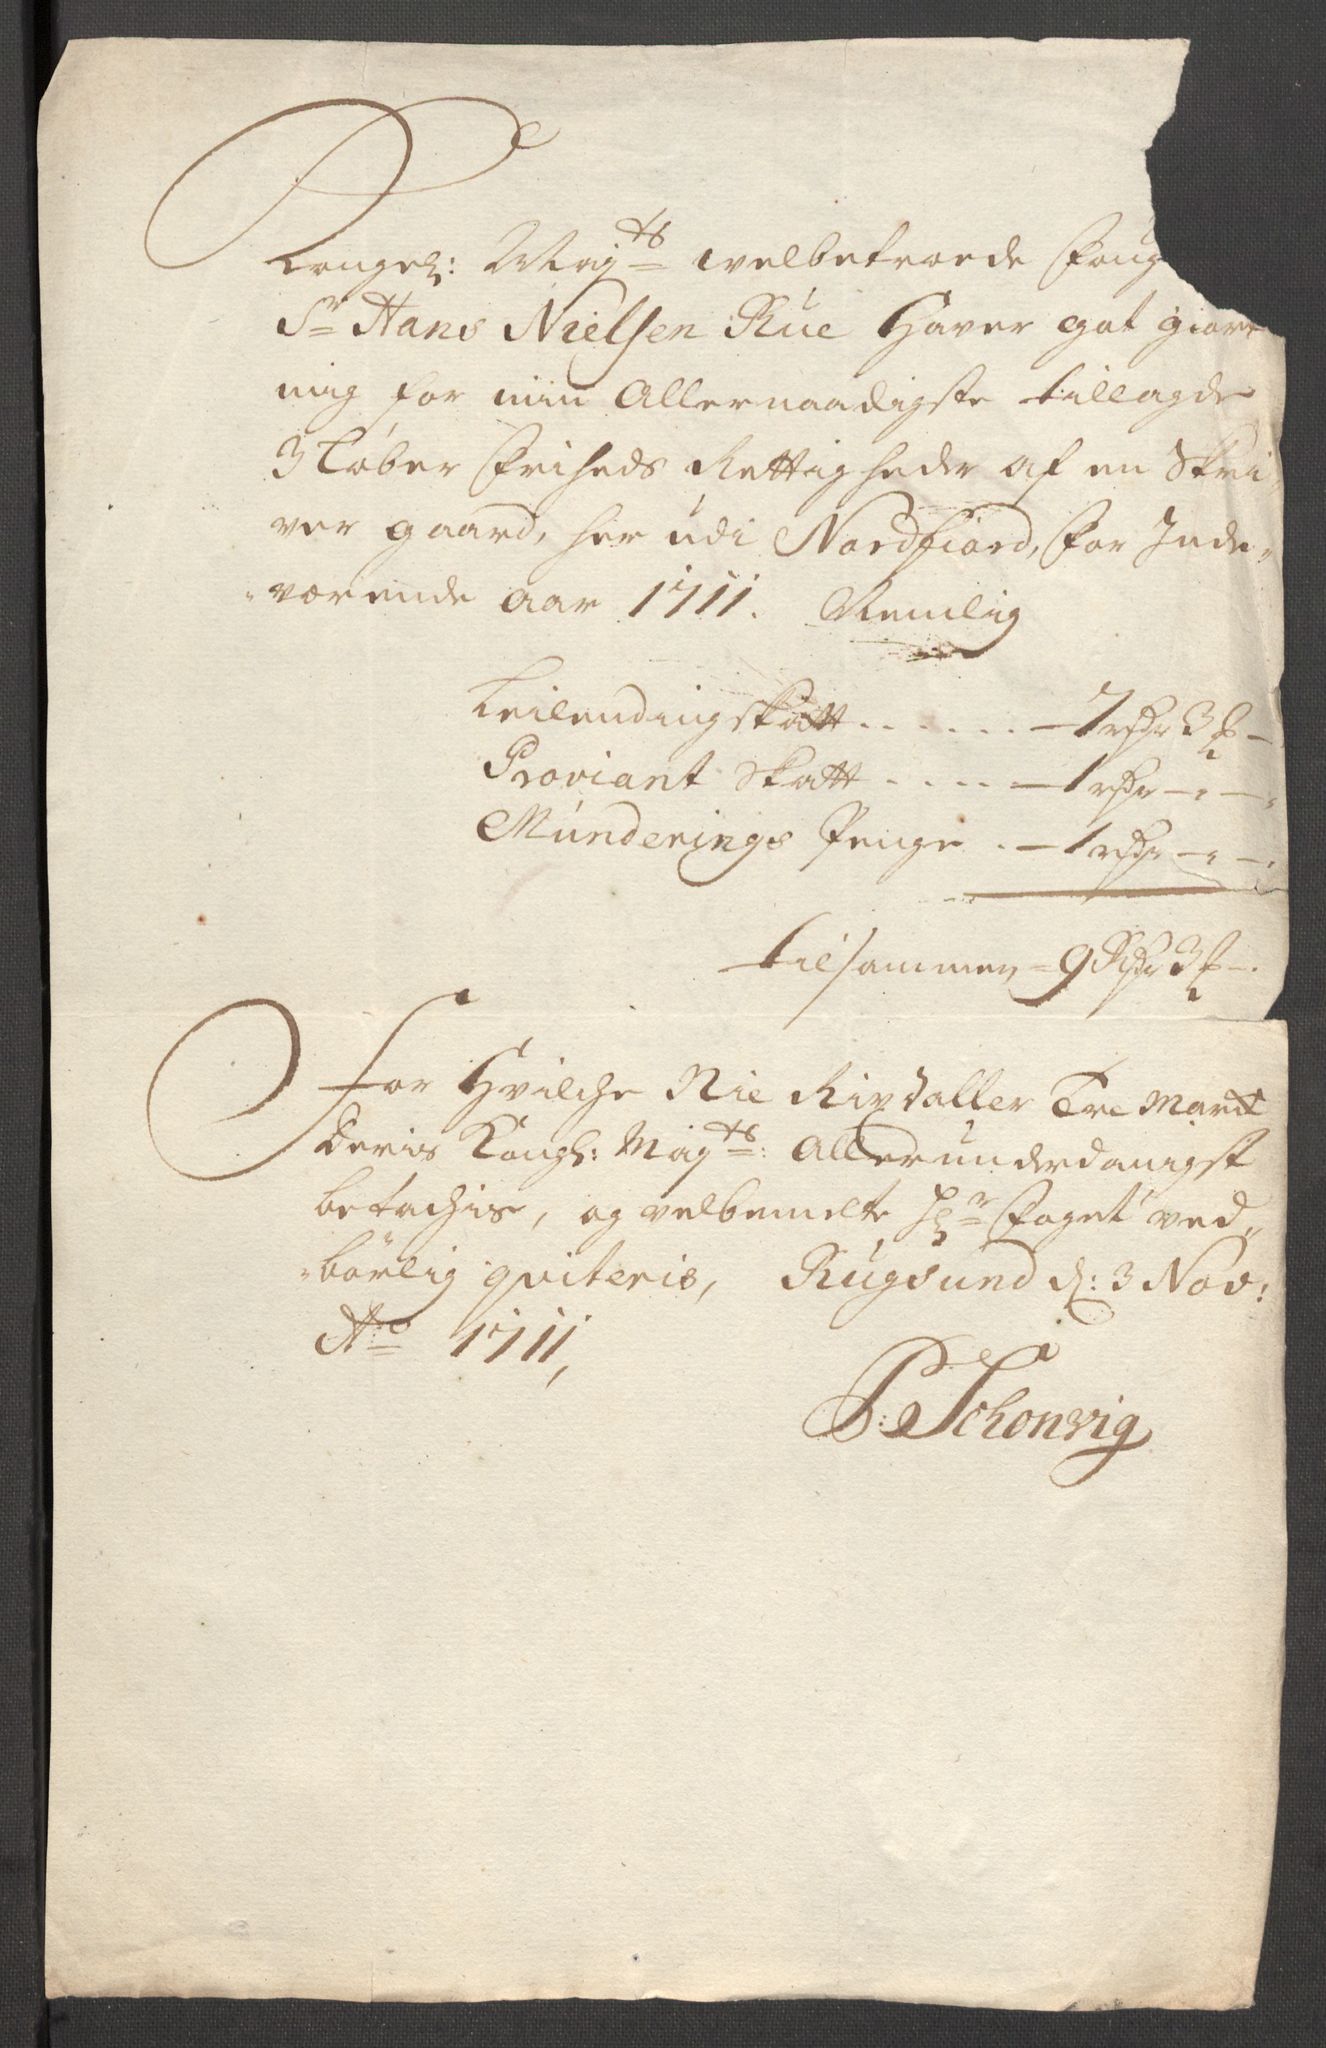 Kongel: Maj:ts welbetroede Foug
Sr Hans Nielsen Rue Hafver got giort
mig for min Allernaadigste tillagde
3 Løber Friheds Rettigheder af en Skri-
ver gaard, her udi Nordfiord, for Inde-
værende aar 1711. Nemlig
Leilendingskatt . . . . . . - 7 rdr 3 mk -
Proviant Skatt . . . . - 1 rdr - - -
Munderings Penge . - 1 rdr - - -
tilsammen = 9 Rdr 3 mk -.
For Hvilche Nie Rixdaller Tre March
Deris Kongl: Maj:ts Allerunderdanigst
betachis, og velbemelte Hr Foget ved-
børlig qviteris, Rugsund d: 3 Nov:
Ao 1711,
P: Schonvig